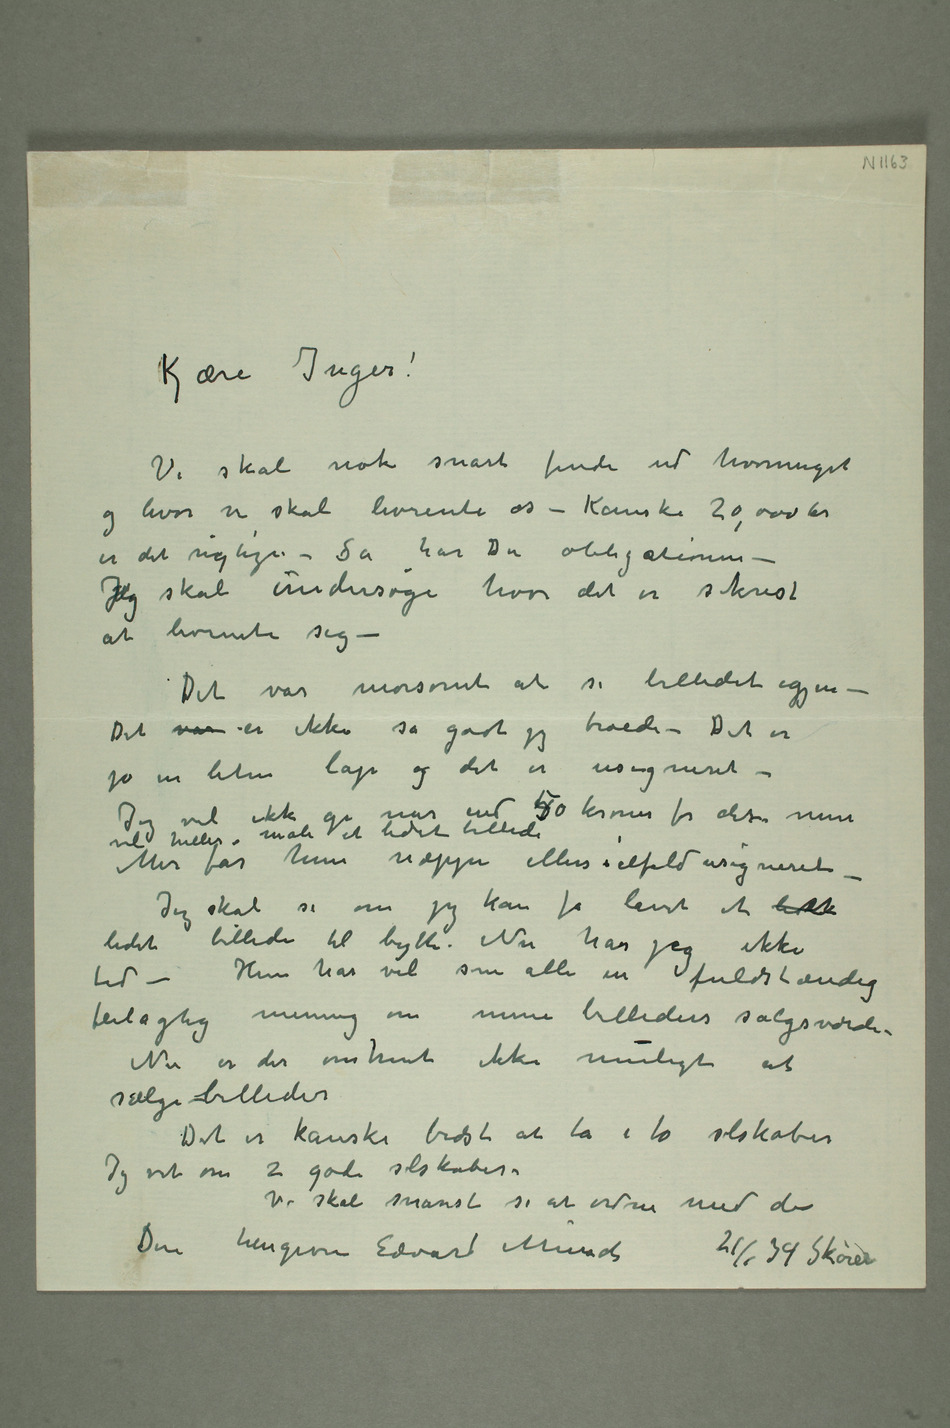 N 1163
Kjære Inger!
Vi skal nok snart finde ud hvormeget
og hvor vi skal livrente os – Kanske 20,000 kr
er det rigtige – Så har Du obligationer –
Jeg skal undersøge hvor det er sikrest
at livrente sig –
Det var morsomt at se billedet igjen –
Det var er ikke så godt jeg troede – Det er
jo en liten lap og det er usigneret –
Jeg vil ikke gi mer end 50 kroner for det men
vil heller male et lidet billede
Mer får hun næppe ellers ialfald usigneret –
Jeg skal se om jeg kan få lavet et lidet
lidet billede til bytte. Nu har jeg ikke
tid – Hun har vel som alle en fuldstændig
feilagtig mening om mine billeders salgsværdi –
Nu er der omtrent ikke muligt at
sælge billeder
Det er kanske bedst at ta i to selskaber
Jeg vet om 2 gode selskaber.
Vi skal snarest se at ordne med det
Din hengivne Edvard Munch
34 Skøien